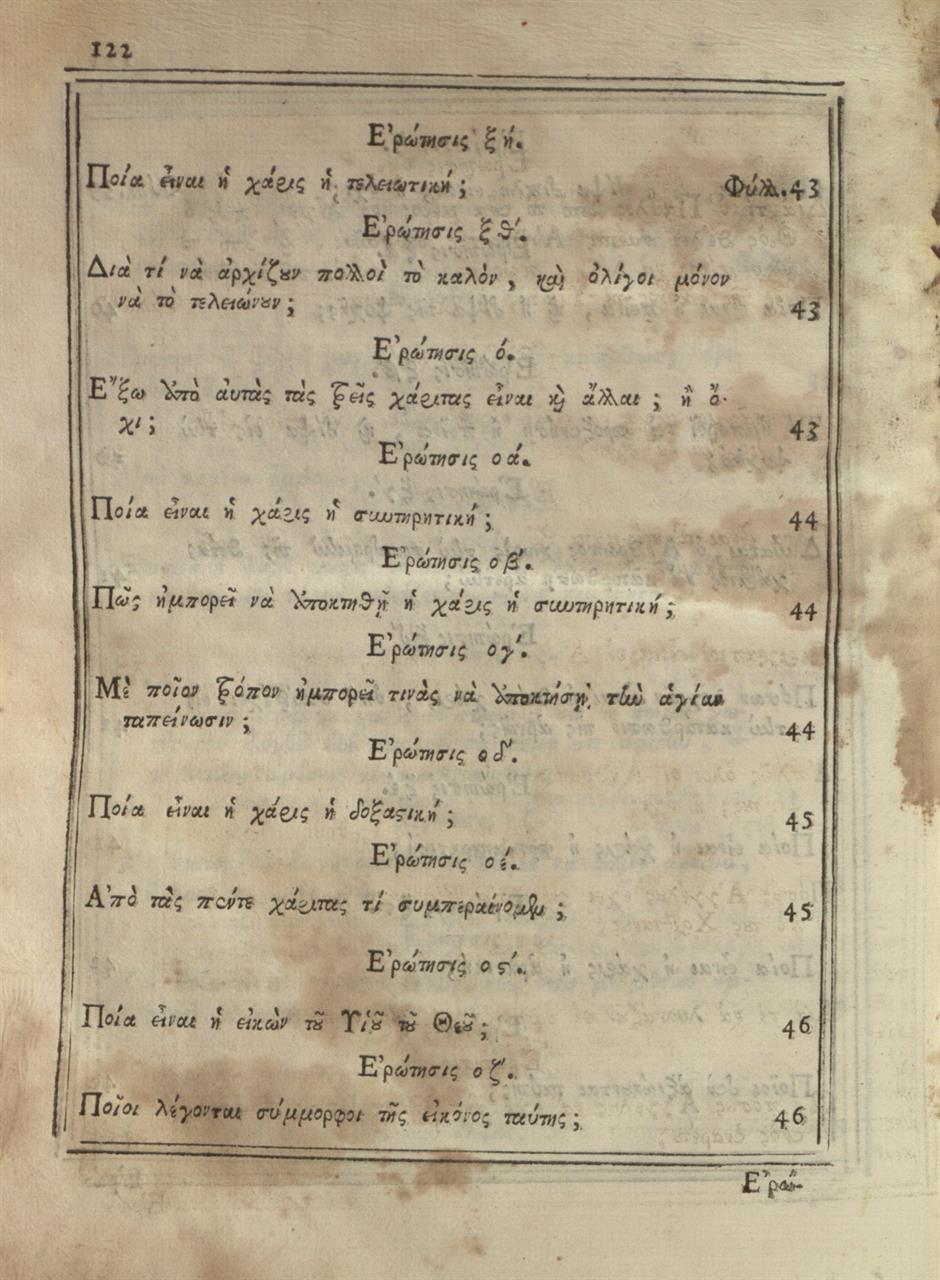 122
Ε᾿ρώτησις ξή.
Ποία εἶναι ἡ χάρις ἡ τελειωτική; Φύλλ.43
Ε᾿ρώτησις ξθ´.
Διὰ τί νὰ ἀρχίζουν πολλοὶ τὸ καλὸν, καὶ ὀλίγοι μόνον
νὰ τὸ τελειώνουν; 43
Ε᾿ρώτησις ό.
Ε῎ξω ἀπὸ ἀυτὰς τὰς τρεῖς χάριτας εἶναι καὶ ἄλλαι; ἢ ὄ-
χι; 43
Ε᾿ρώτησις οά.
Ποία εἶναι ἡ χάρις ἡ συντηρητική; 44
Ε᾿ρώτησις οβ´.
Πῶς ἠμπορεῖ νὰ ἀποκτηθῇ ἡ χάρις ἡ συντηρητική; 44
Ε᾿ρώτησις ογ´.
Μὲ ποῖον τρόπον ἠμπορεῖ τινὰς νὰ ἀποκτήσῃ τὴν ἁγίαν
ταπείνωσιν; 44
Ε᾿ρώτησις οδ´.
Ποία εἶναι ἡ χάρις ἡ δοξαστική; 45
Ε᾿ρώτησις οέ.
Α᾿πὸ τὰς πέντε χάριτας τί συμπεραίνομεν; 45
Ε᾿ρώτησις ος´.
Ποία εἶναι ἡ εἰκὼν τοῦ Υἱοῦ τοῦ Θεοῦ; 46
Ε᾿ρώτησις οζ´.
Ποῖοι λέγονται σύμμορφοι τῆς εἰκόνος ταύτης; 46
Ε᾿ρώ-